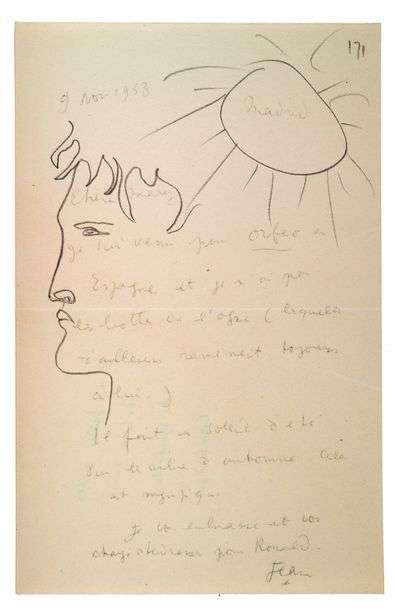 171
9 Nov 1953
Madrid
Chère Mary
je suis venu pour Orfeo en
Espagne et je n'ai pas
les bottes de l'ogre (lesquelles
d'ailleurs revenaient toujours
à lui.)
Il fait un soleil d'été
sur arbre d'automne. Cela
est magnifique
Je t'embrasse et vos
pour Ronald.
Jean